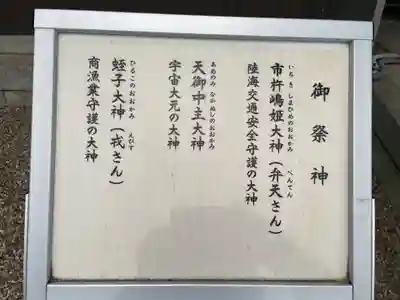 御祭神
いちきしまひめのおおかみ
べんてん
市杵嶋姫大神(弁天さん)
陸海交通安全守護の大神
あめのみなかぬしのおおかみ
天御中主大神
宇宙大元の大神
ひるこのおおかみ
えびす
蛭子大神(戎さん)
商漁業守護の大神